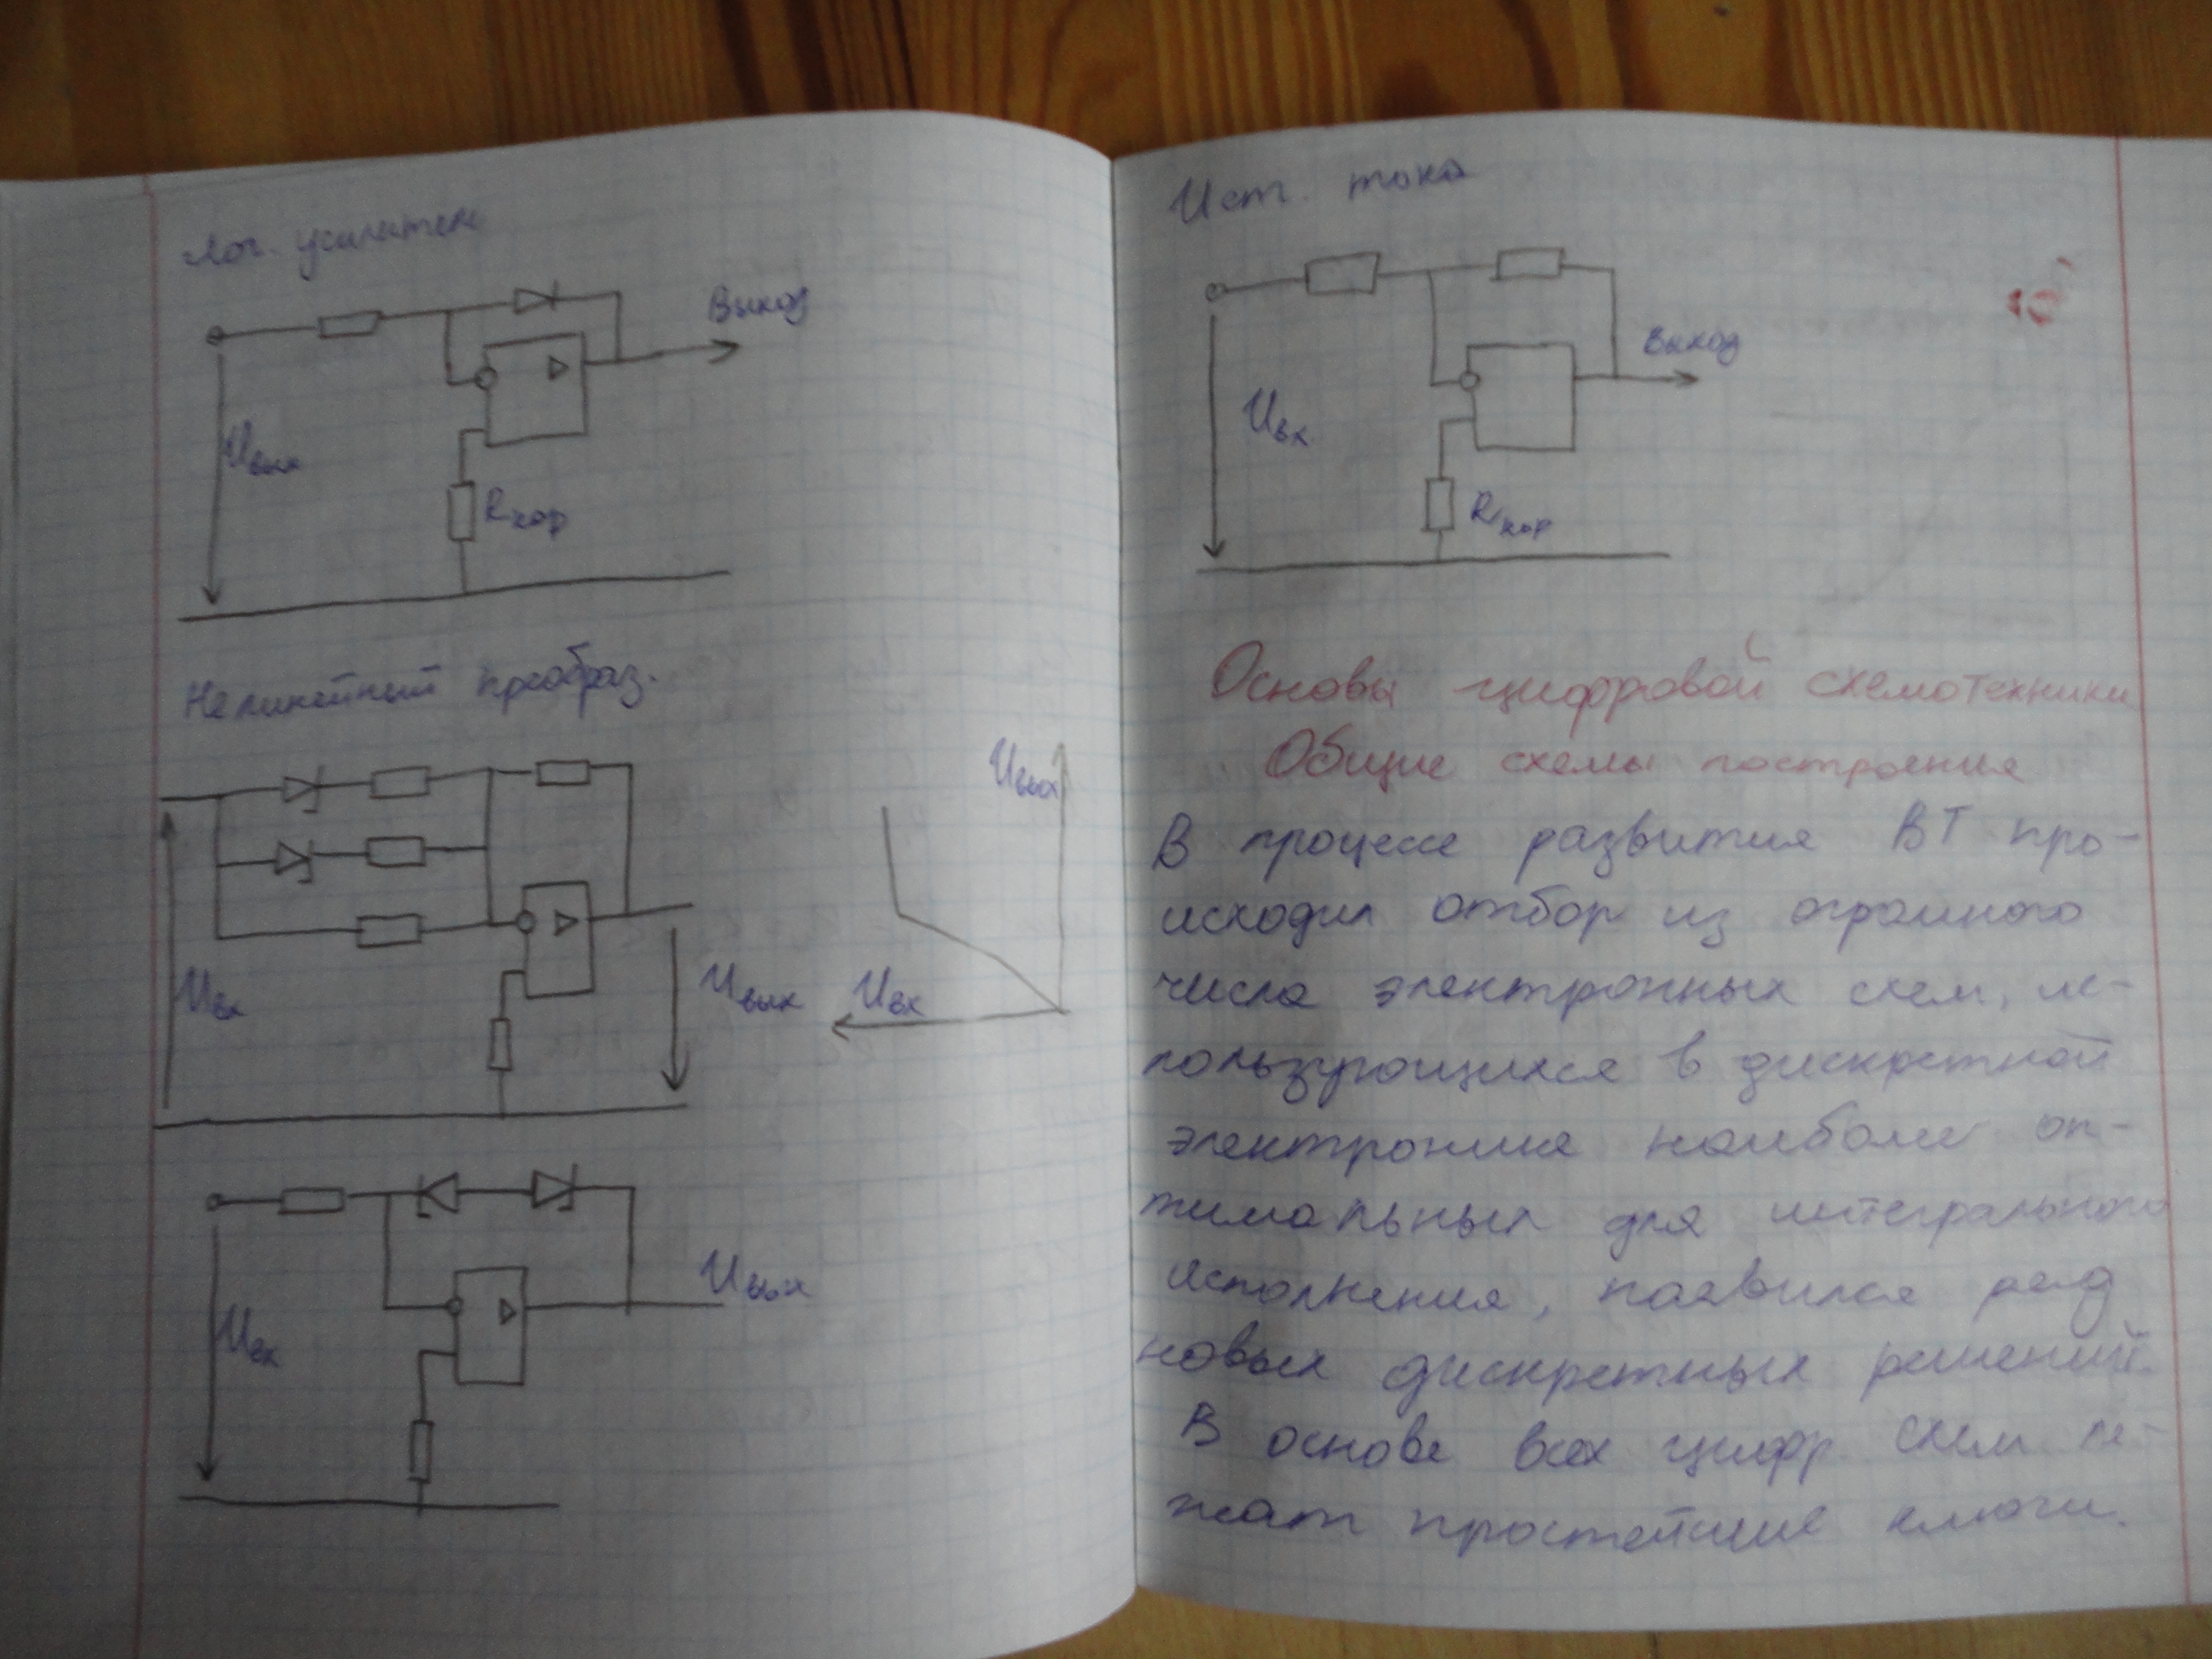 Лог. усилитель
Выход
Uвых
Rкор
Нелинейный преобраз.
Uвх
Uвых
Uвых
Uвх
Uвх
Uвых
Ист. тока
Выход
Uвх
Rкор
Основы цифровой схемотехники
Общие схемы построения
В процессе развития ВТ про-
исходил отбор из огромного
числа электронных схем, ис-
пользующихся в дискретной
электронике наиболее оп-
тимальных для интегрального
исполнения, появился ряд
новых дискретных решений.
В основе всех цифр. схем ле-
жат простейшие ключи.